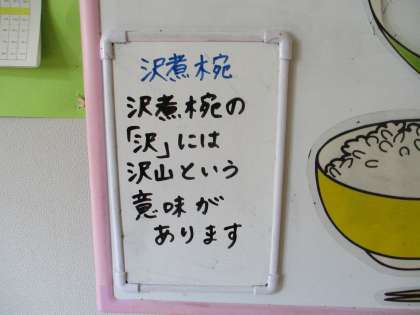 沢煮椀
沢煮椀の
「沢」には
沢山という
意味が
あります